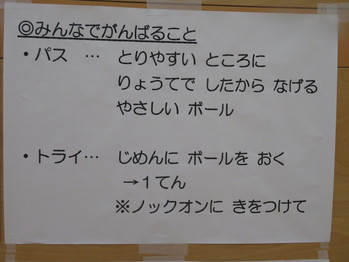 ◎みんなでがんばること
・パス … とりやすい ところに
りょうてで したから なげる
やさしい ボール
・トライ… じめんに ボールを おく
→1てん
※ノックオンに きをつけて